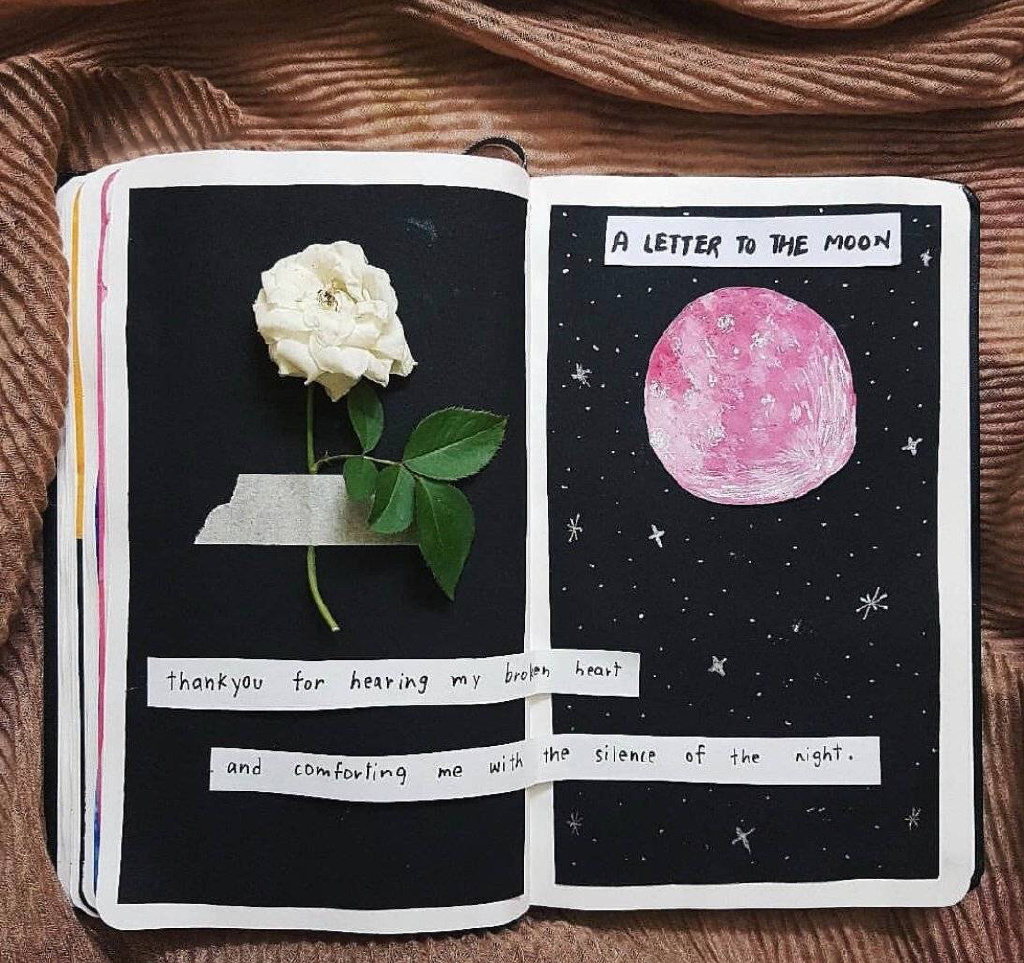 A LETTER TO THE MOON
thankyou for hearing my broken heart
and comforting me with the silence of the night.